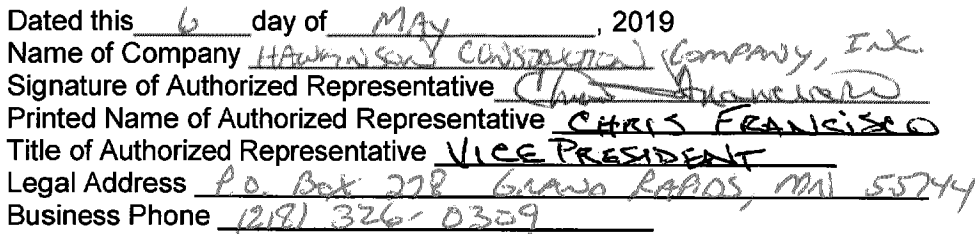 Dated this 6 day of MAY, 2019
Name of Company HAWKINSON CONSTRUCTION COMPANY, INC.
Signature of Authorized Representative Chris Francisco
Printed Name of Authorized Representative CHRIS FRANCISCO
Title of Authorized Representative VICE PRESIDENT
Legal Address P.O. BOX 278 GRAND RAPIDS, MN 55744
Business Phone (218) 326-0309